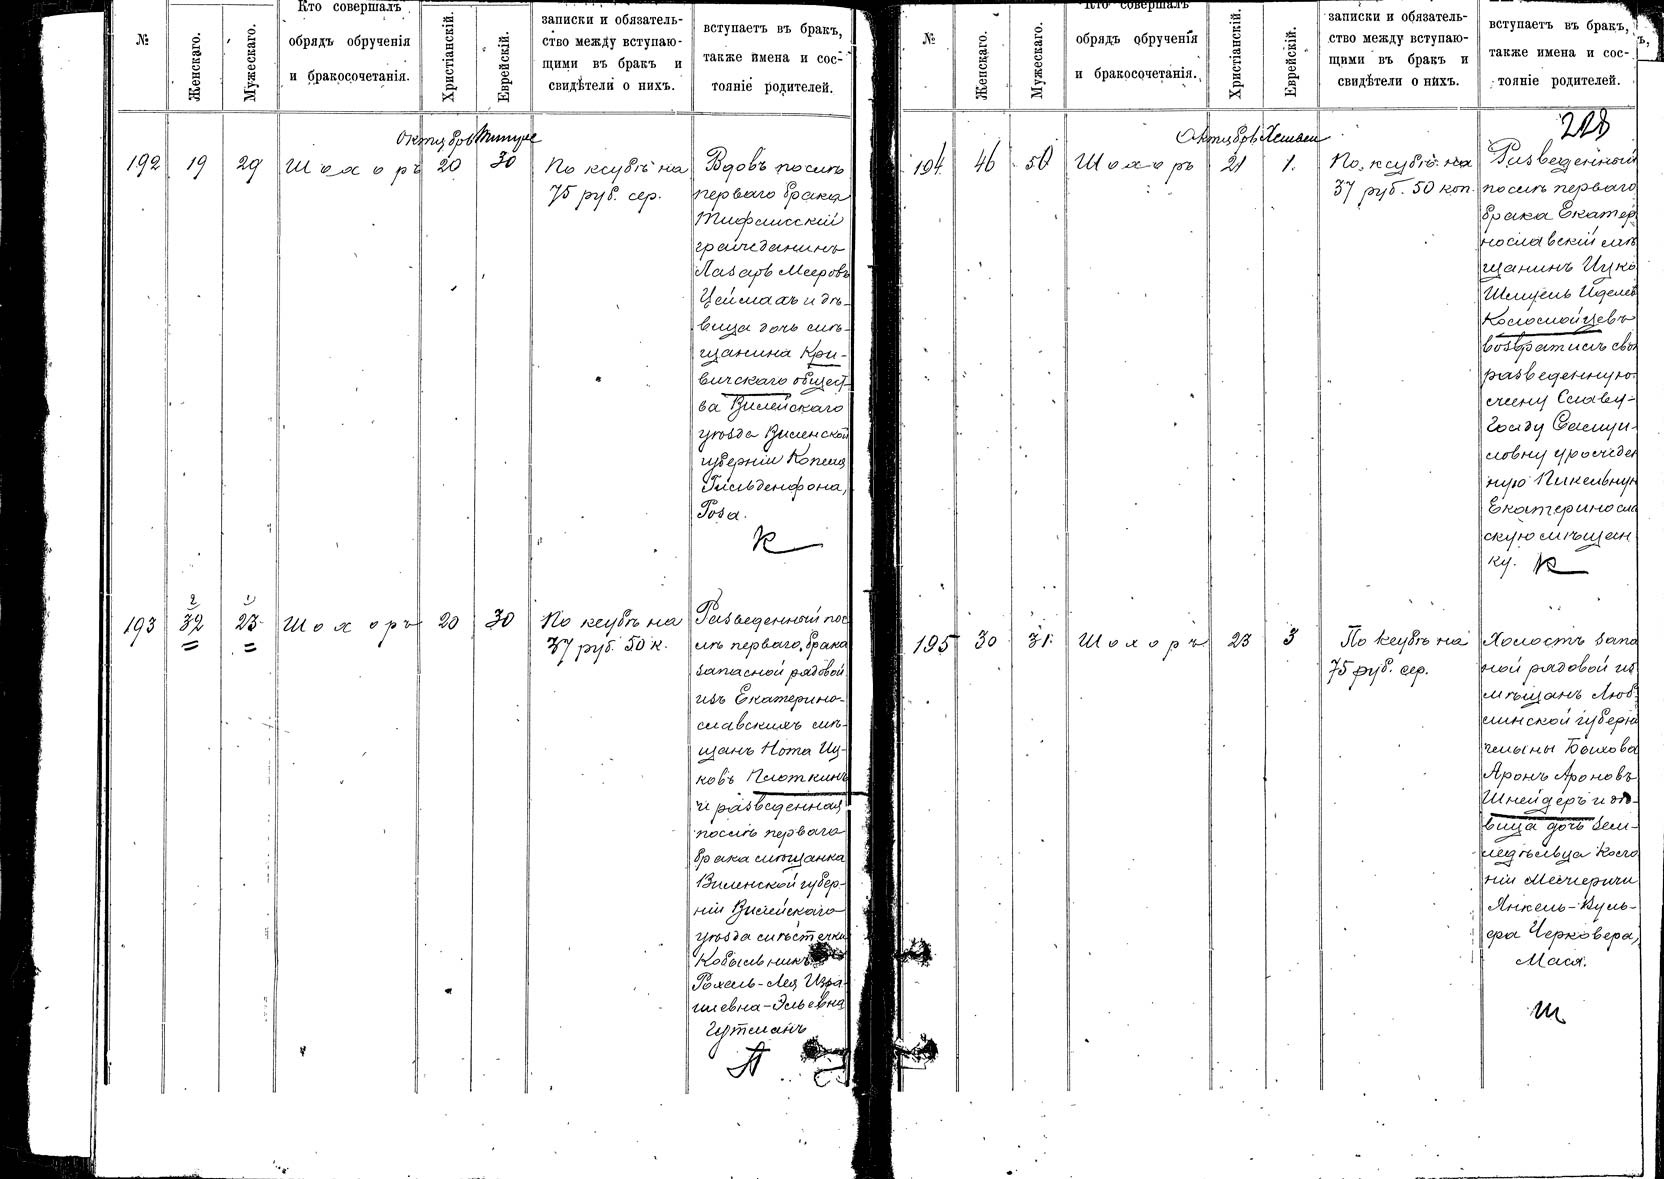 №
Женскаго.
Мужескаго.
Кто совершалъ
обрядъ обрученія
и бракосочетанія.
Христіанскій.
Еврейскій.
записки и обязатель-
ство между вступаю-
щими въ бракъ и
свидѣтели о нихъ.
вступаетъ въ бракъ,
также имена и сос-
тояніе родителей.
Октябрь Тишре
192 19 29 Шохоръ 20 30
По ксубѣ на
75 руб. сер.
Вдовъ послѣ
перваго брака
Тифлисскій
гражданинъ
Лазарь Мееровъ
Цеймахъ и дѣ-
вица дочь мѣ-
щанина Кри-
вичскаго общест-
ва Вилейскаго
уѣзда Виленской
губерніи Копеля
Гильденфона,
Роза.
К
193 32 23 Шохоръ 20 30
По ксубѣ на
37 руб. 50 к.
Разведенный пос-
лѣ перваго брака
запасной рядовой
изъ Екатерино-
славскихъ мѣ-
щанъ Нота Иц-
ковъ Плоткинъ
и разведенная
послѣ перваго
брака мѣщанка
Виленской губер-
ніи Вилейскаго
уѣзда мѣстечка
Кобыльникъ
Рохель-Лея Изра-
илевна-Эльевна
Гутманъ
П
№
Женскаго.
Мужескаго.
Кто совершалъ
обрядъ обрученія
и бракосочетанія.
Христіанскій.
Еврейскій.
записки и обязатель-
ство между вступаю-
щими въ бракъ и
свидѣтели о нихъ.
вступаетъ въ бракъ,
также имена и сос-
тояніе родителей.
228
Октябрь Хешван
194 46 50 Шохоръ 21 1.
По ксубѣ на
37 руб. 50 коп.
Разведенный
послѣ перваго
брака Екатер
нославскій мѣ
щанинъ Ицко
Шмуель Иделев
Коломойцевъ
возвратилъ свою
разведенную
жену Славу-
Голду Самуи-
ловну урожден
ную Пикельную
Екатеринослав
скую мѣщан
ку.
К
195 30 31 Шохоръ 23 3
По ксубѣ на
75 руб. сер.
Холостъ запа
ной рядовой из
мѣщанъ Люб-
линской губерн
гмины Быхова
Аронъ Ароновъ
Шнейдеръ и дѣ-
вица дочь зем-
ледѣльца коло
ніи Межеричи
Янкель-Вуль-
фа Черковера,
Мася.
Ш